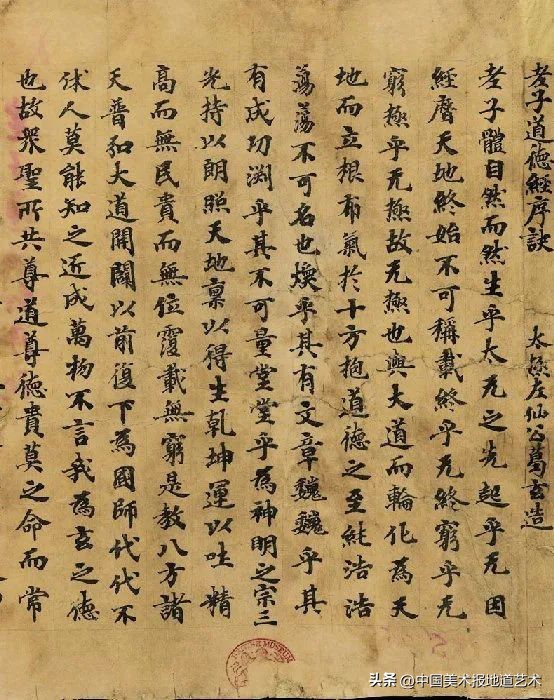 老子道德經序訣 太極左仙公葛玄造
老子體自然而然生乎太无之先起乎无因
經曆天地終始不可稱載終乎无終窮乎无
窮極乎无極故无極也與大道而輪化為天
地而立根布氣於十方抱道德之至純浩浩
蕩蕩不可名也煥乎其有文章巍巍乎其
有成功渊乎其不可量堂堂乎為神明之宗三
光持以朗照天地稟以得生乾坤運以吐精
高而無民貴而無位覆載無窮是教八方諸
天普弘大道開闢以前復下為國師代代不
休人莫能知之匠成萬物不言我為玄之德
也故眾聖所共尊道尊德貴莫之命而常
MUSEUM
头条 @中国美术报地道艺术